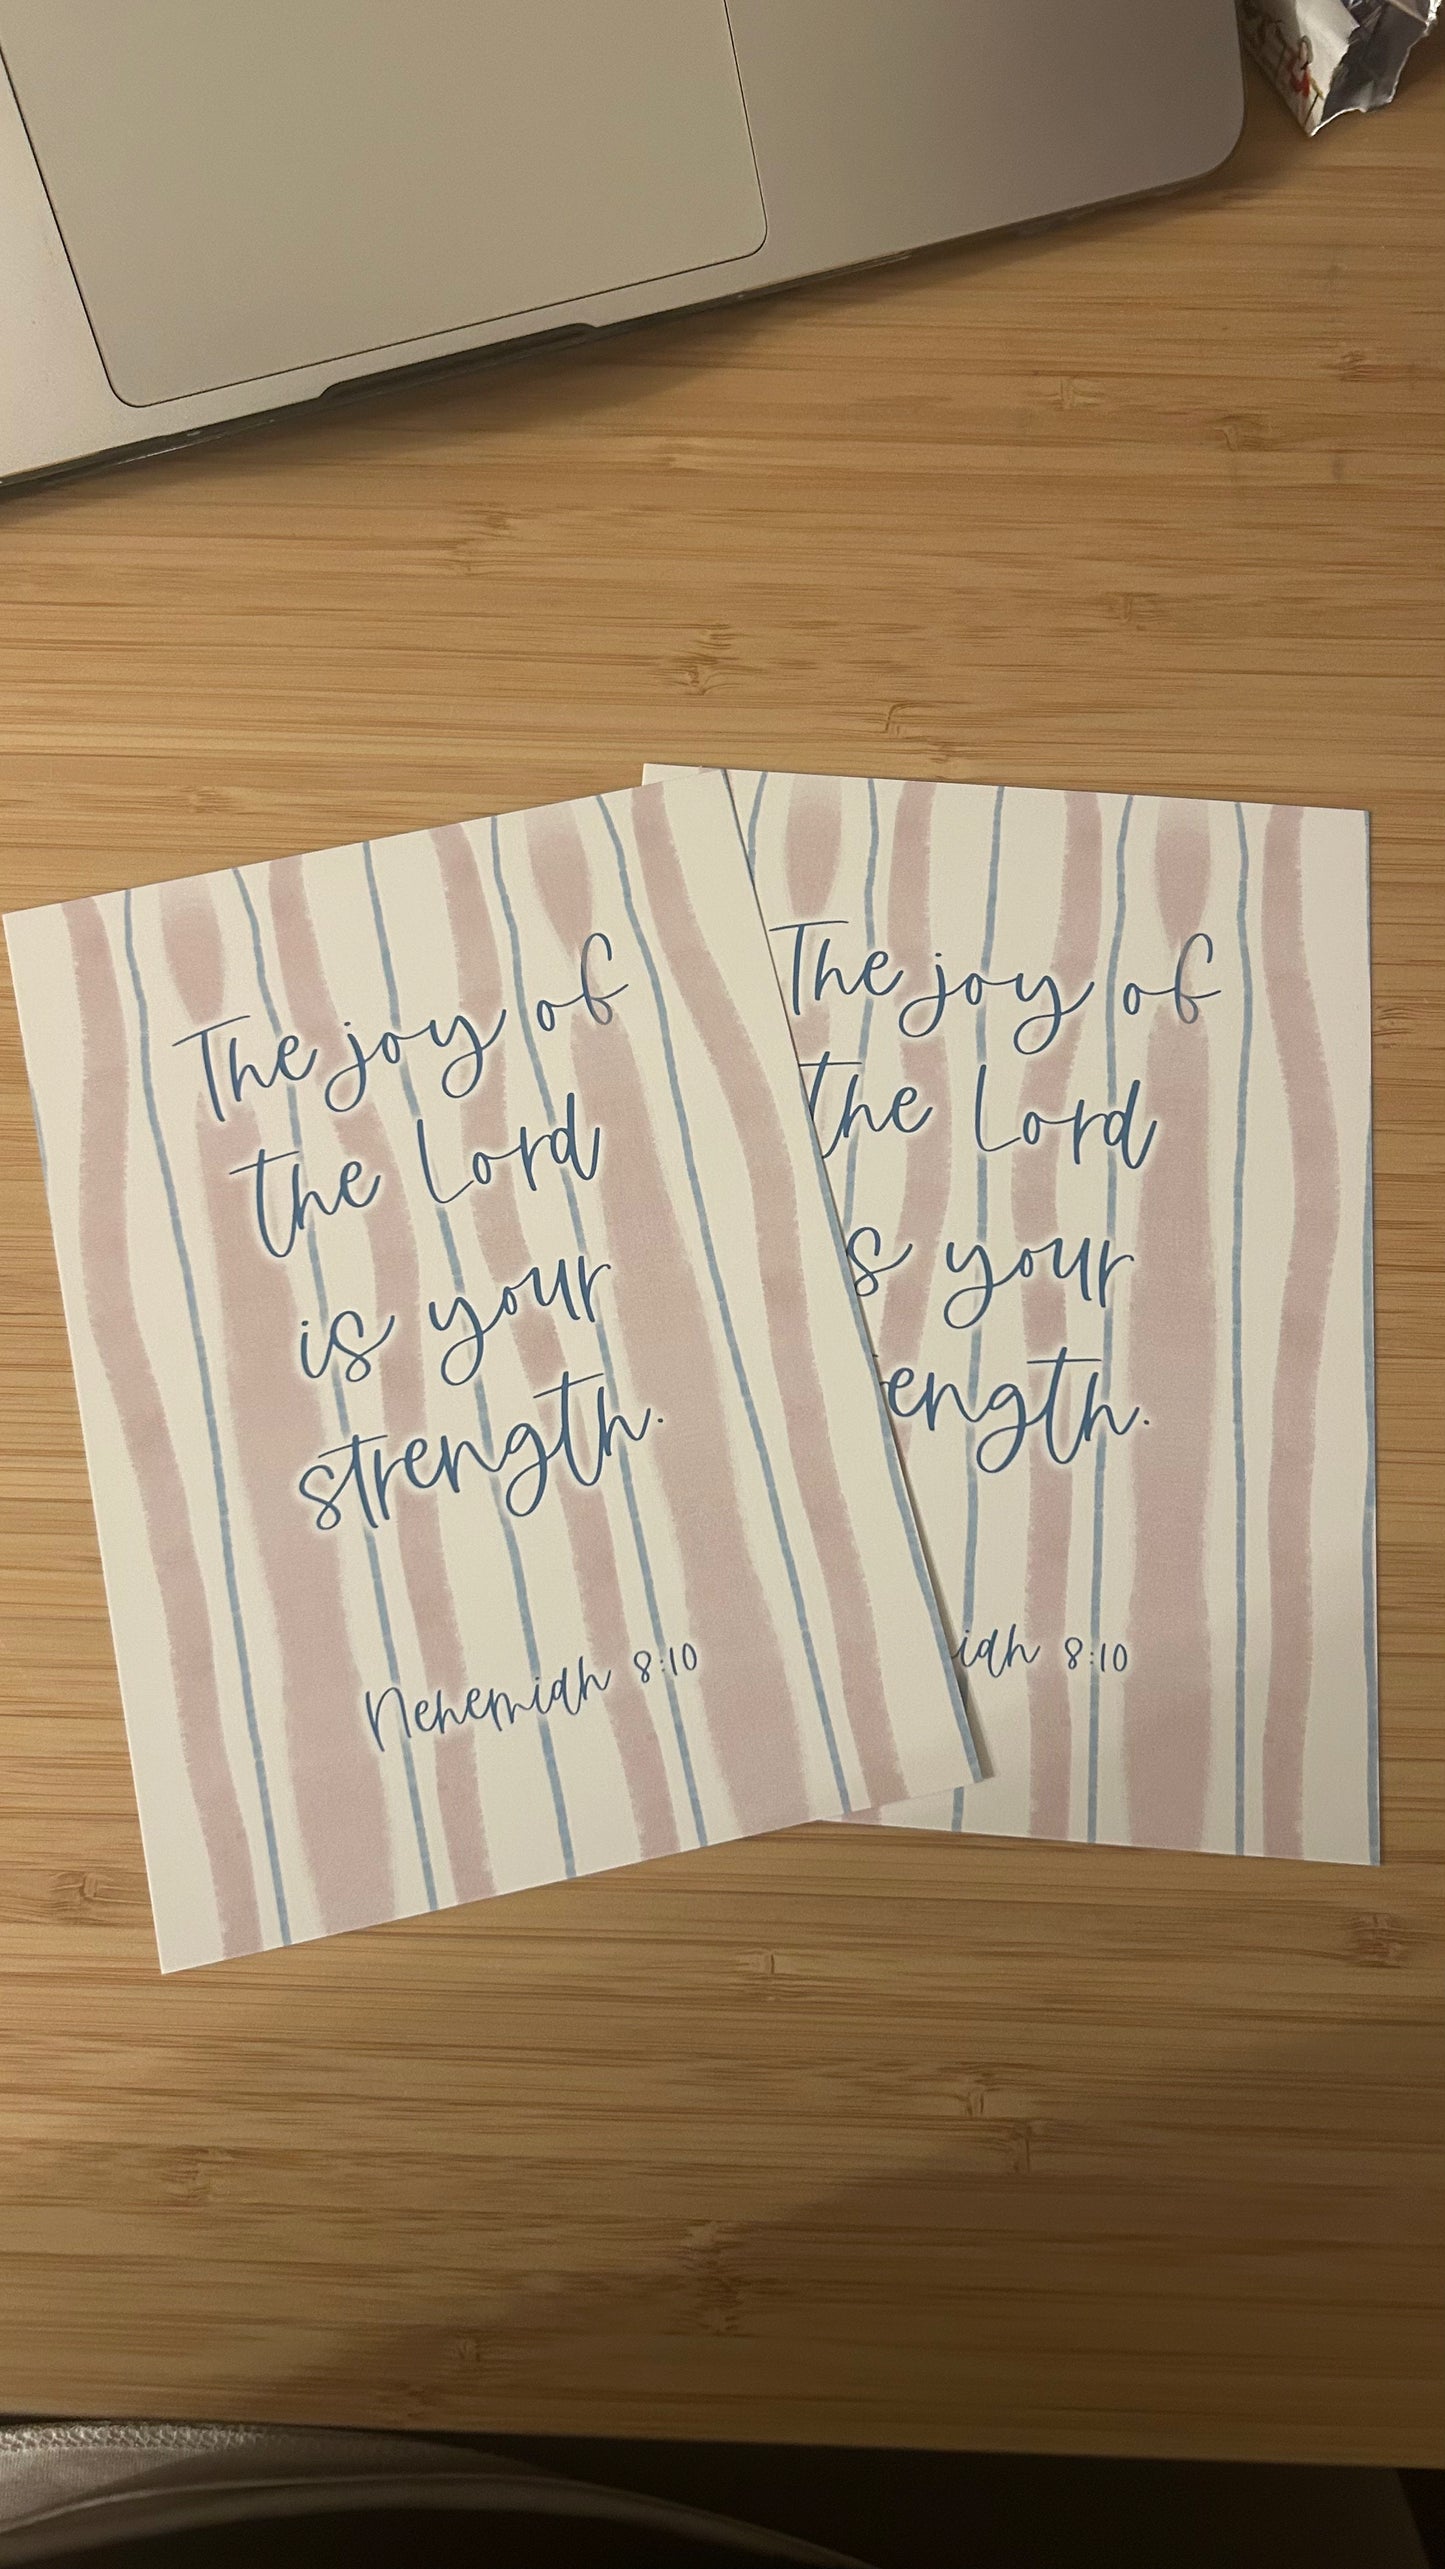 The joy of
the Lord
is your
strength.
Nehemiah 8:10
The joy of
the Lord
s your
ength.
iah 8:10